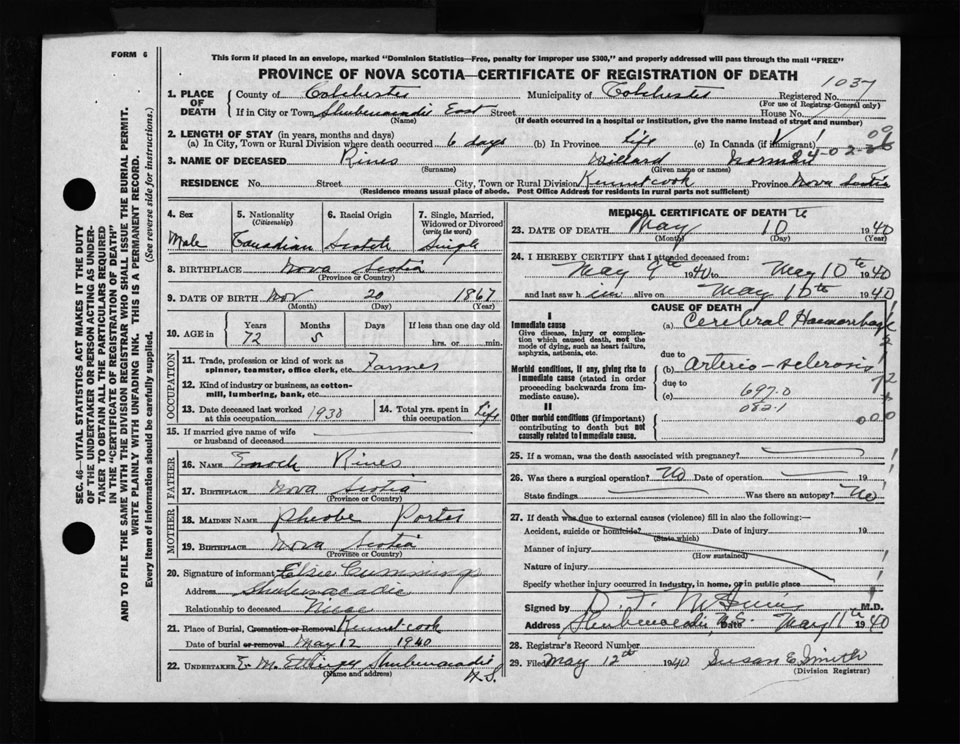 FORM 6
This form if placed in an envelope, marked "Dominion Statistics—Free, penalty for improper use $300," and properly addressed will pass through the mail "FREE"
PROVINCE OF NOVA SCOTIA—CERTIFICATE OF REGISTRATION OF DEATH
1037
1. PLACE OF DEATH
County of Colchester Municipality of Colchester Registered No.
(For use of Registrar General only)
If in City or Town Shubenacadie East Street House No.
(Name) (If death occurred in a hospital or institution, give the name instead of street and number)
2. LENGTH OF STAY (in years, months and days)
(a) In City, Town or Rural Division where death occurred 6 days (b) In Province life (c) In Canada (if immigrant)
3. NAME OF DECEASED Rines Willard Norman
(Surname) (Given name or names)
RESIDENCE No. Street City, Town or Rural Division Kennetcook Province Nova Scotia
(Residence means usual place of abode. Post Office Address for residents in rural parts not sufficient)
4. Sex Male
5. Nationality (Citizenship) Canadian
6. Racial Origin Scotch
7. Single, Married, Widowed or Divorced (write the word) Single
8. BIRTHPLACE Nova Scotia
(Province or Country)
9. DATE OF BIRTH Nov 20 1867
(Month) (Day) (Year)
10. AGE in Years Months Days If less than one day old
72 5 hrs. or min.
OCCUPATION
11. Trade, profession or kind of work as spinner, teamster, office clerk, etc. Farmer
12. Kind of industry or business, as cotton-mill, lumbering, bank, etc.
13. Date deceased last worked at this occupation 1930
14. Total yrs. spent in this occupation life
15. If married give name of wife or husband of deceased
FATHER
16. NAME Enoch Rines
17. BIRTHPLACE Nova Scotia
(Province or Country)
MOTHER
18. MAIDEN NAME Pheobe Porter
19. BIRTHPLACE Nova Scotia
(Province or Country)
20. Signature of informant Elsie Cummings
Address Shubenacadie
Relationship to deceased Niece
21. Place of Burial, Cremation or Removal Kennetcook
Date of burial or removal May 12 1940
22. UNDERTAKER Shubenacadie
N.S.
(Name and address)
MEDICAL CERTIFICATE OF DEATH
23. DATE OF DEATH May 10 1940
(Month) (Day) (Year)
24. I HEREBY CERTIFY that I attended deceased from:
May 9th 1940 to May 10th 1940
and last saw him alive on May 10th 1940
CAUSE OF DEATH
I
Immediate cause
Give disease, injury or complication which caused death, not the mode of dying, such as heart failure, asphyxia, asthenia, etc.
(a) Cerebral Haemorrhage
due to
Morbid conditions, if any, giving rise to immediate cause (stated in order proceeding backwards from immediate cause)
(b) Arterio-sclerosis
due to
(c) 697.0
082.1
II
Other morbid conditions (if important) contributing to death but not causally related to immediate cause.
25. If a woman, was the death associated with pregnancy?
26. Was there a surgical operation? No Date of operation 19
State findings Was there an autopsy? No
27. If death was due to external causes (violence) fill in also the following:—
Accident, suicide or homicide? Date of injury 19
(State which)
Manner of injury
(How sustained)
Nature of injury
Specify whether injury occurred in industry, in home, or in public place
Signed by M.D.
Address Shubenacadie, N.S. Date May 11th 1940
28. Registrar's Record Number
29. Filed May 12th 1940 Susan E. Smith
(Division Registrar)
SEC. 46—VITAL STATISTICS ACT MAKES IT THE DUTY
OF THE UNDERTAKER OR PERSON ACTING AS UNDER-
TAKER TO OBTAIN ALL THE PARTICULARS REQUIRED
IN THE "CERTIFICATE OF REGISTRATION OF DEATH"
AND TO FILE THE SAME WITH THE DIVISION REGISTRAR WHO SHALL ISSUE THE BURIAL PERMIT.
WRITE PLAINLY WITH UNFADING INK. THIS IS A PERMANENT RECORD.
Every item of information should be carefully supplied. (See reverse side for instructions.)